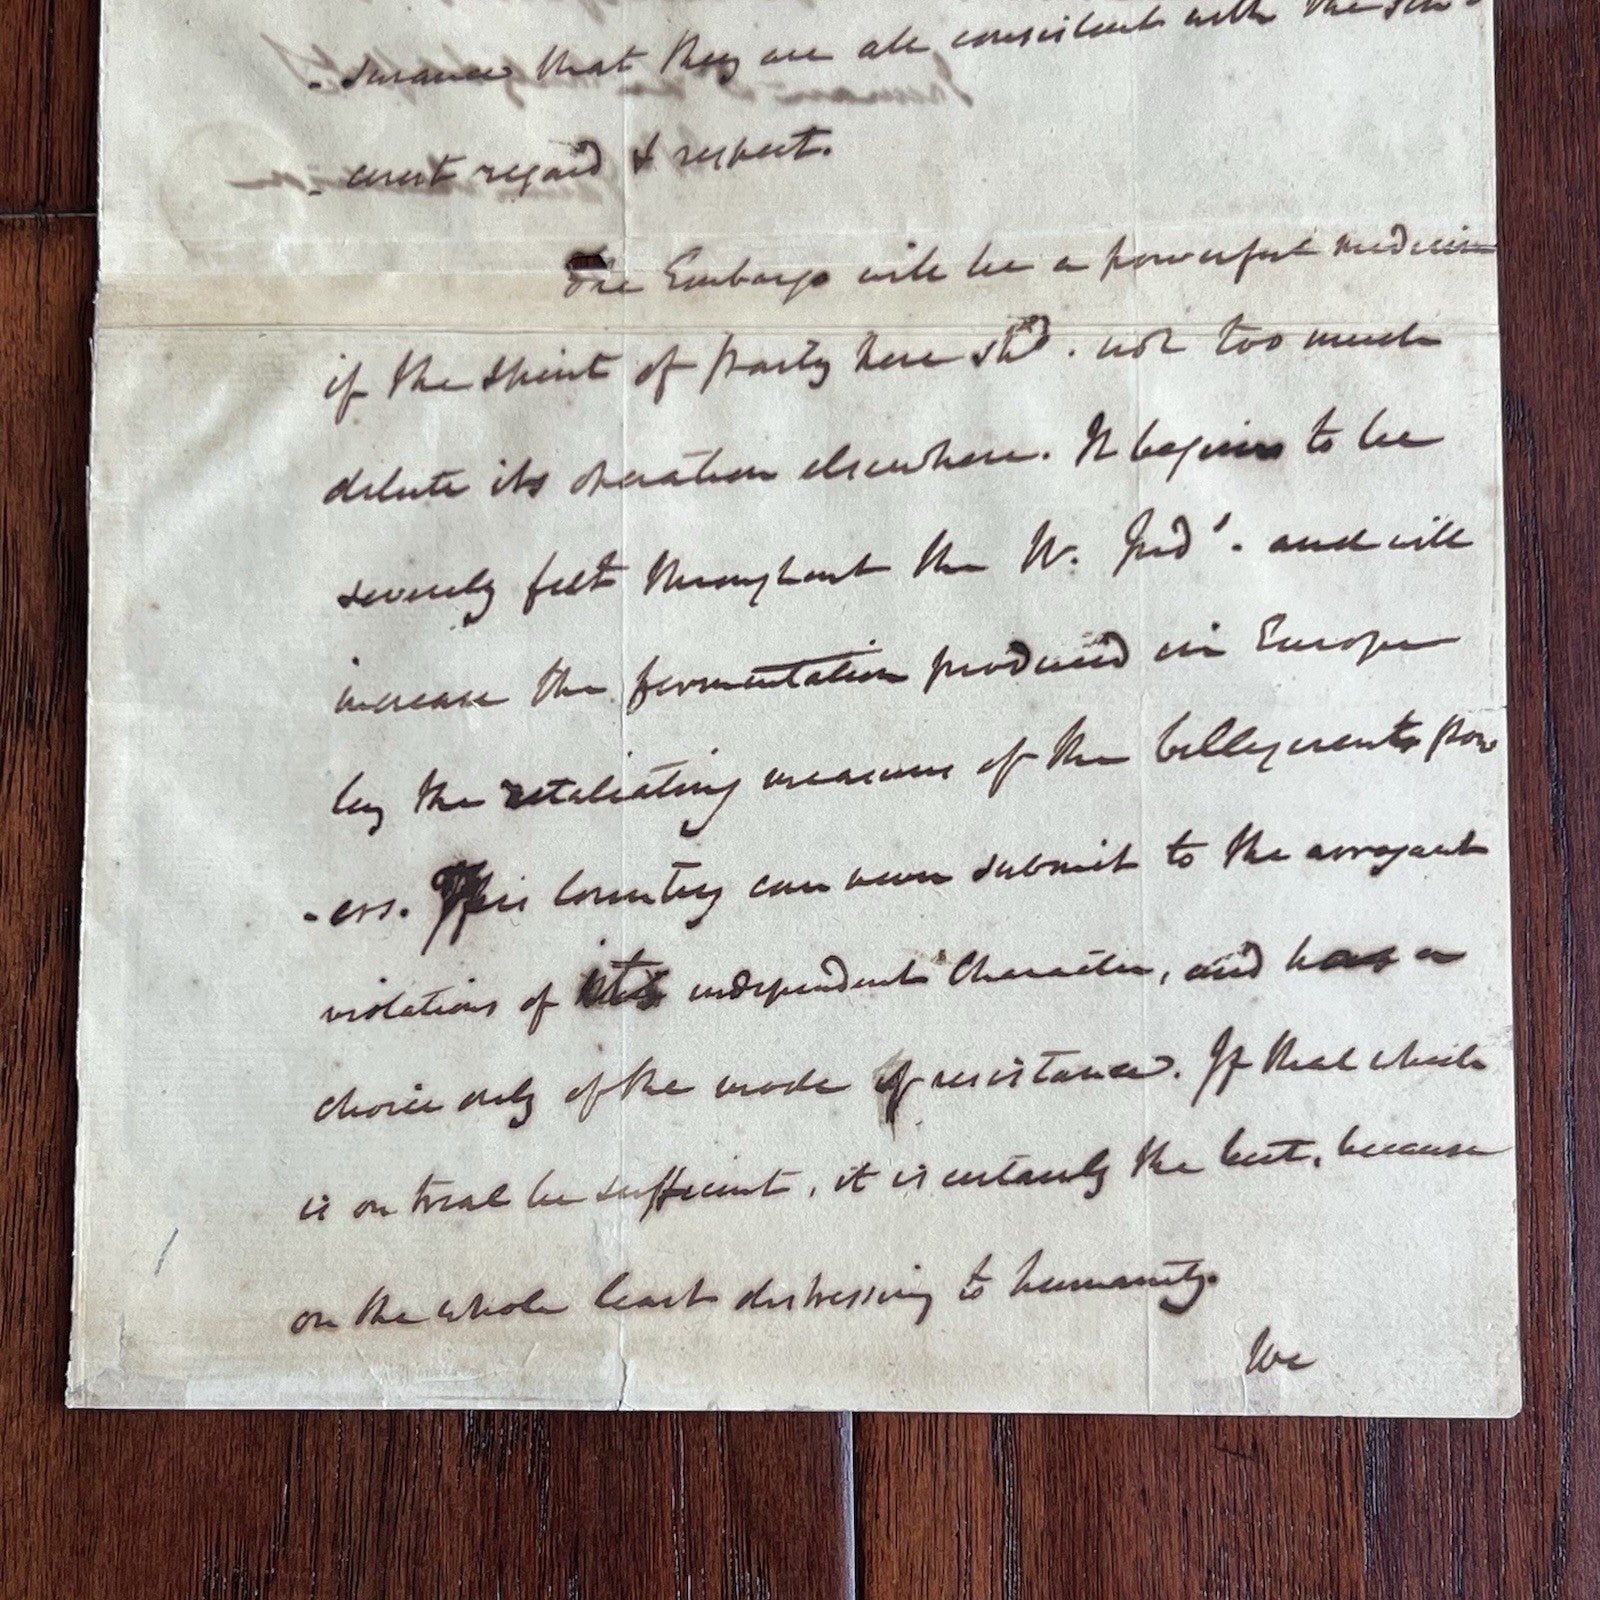 -surances that they are all consistent with the sin-
-cerest regard & respect.
The Embargo will be a powerful medicine
if the spirit of party here shd. not too much
dilute its operation elsewhere. It begins to be
severely felt throughout the W. Inds. and will
increase the fermentation produced in Europe
by the retaliating measures of the belligerents pow
-ers. This Country can never submit to the arrogant
violations of its independent Character, and has a
choice only of the mode of resistance. If that which
is on trial be sufficient, it is certainly the best, because
on the whole least distressing to humanity.
We